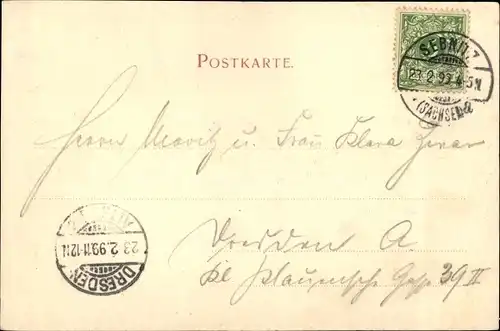 POSTKARTE.
SEBNITZ
23 2 99 4-5N.
(SACHSEN)
Herrn Moritz u. Frau Klara
Dresden A
Kl. Plauensche Gasse 39 II
23 2.99.11-12N
DRESDEN